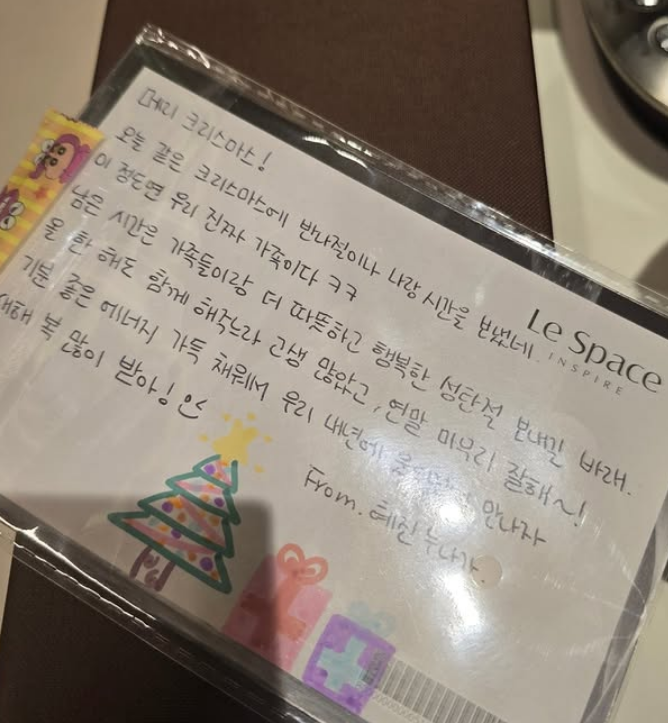 메리 크리스마스!
오늘 같은 크리스마스에 반나절이나 나랑 시간을 보냈네.
이 정도면 우리 진짜 가족이다 ㅋㅋ
남은 시간은 가족들이랑 더 따뜻하고 행복한 성탄절 보내길 바래.
올 한 해도 함께 해주느라 고생 많았고, 연말 마무리 잘해~!
기분 좋은 에너지 가득 채워서 우리 내년에 만나자
새해 복 많이 받아!
From. 혜진 누나가
Le Space
INSPIRE